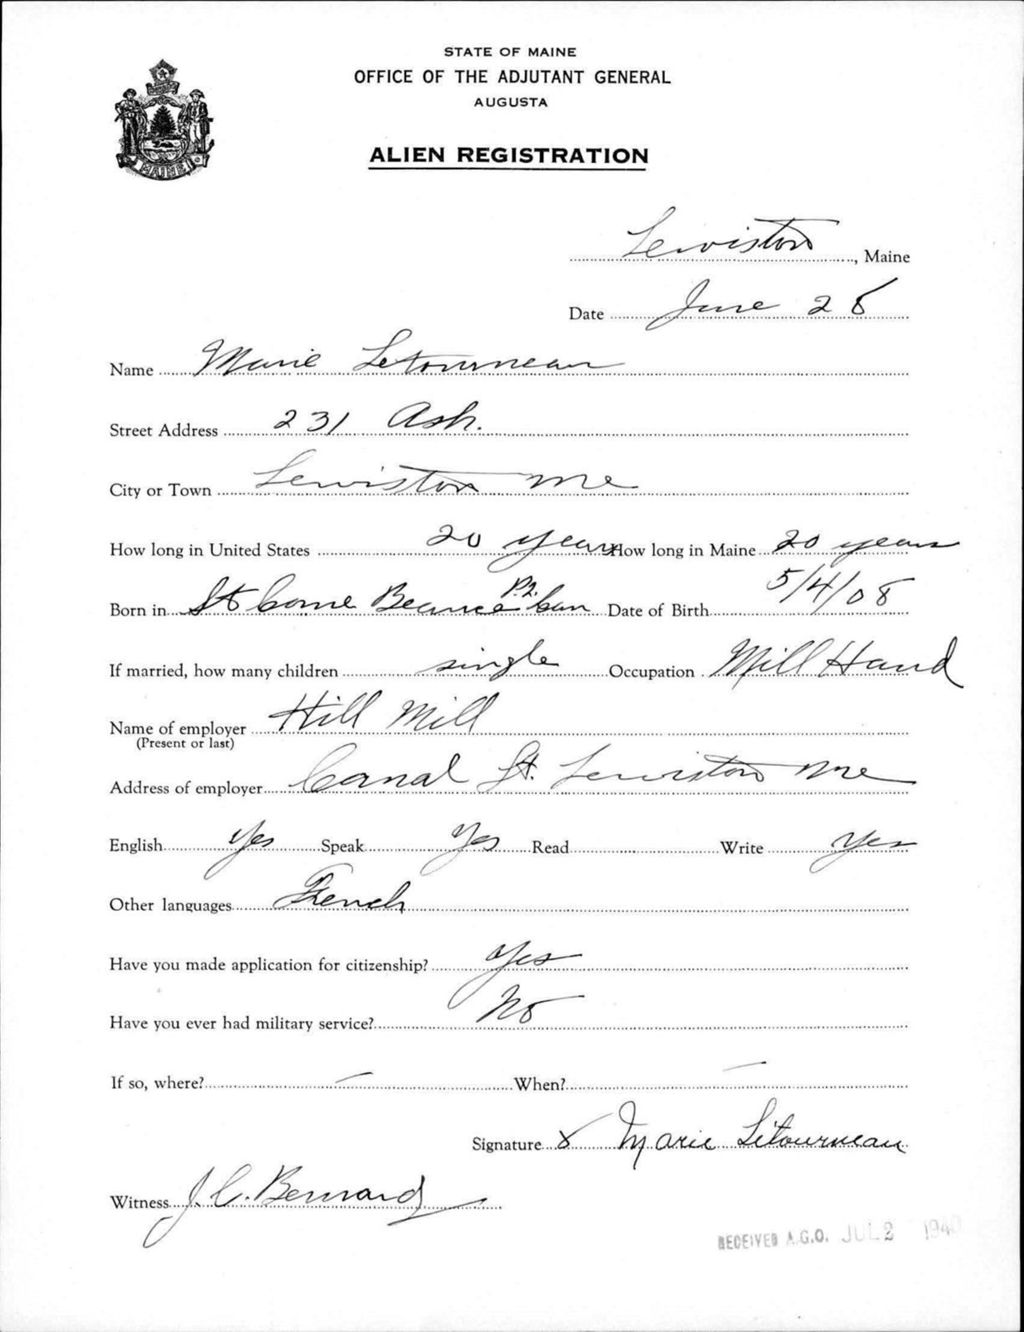 STATE OF MAINE
OFFICE OF THE ADJUTANT GENERAL
AUGUSTA
ALIEN REGISTRATION
MAINE
Lewiston, Maine
Date June 28
Name Marie Letourneau
Street Address 231 Ash.
City or Town Lewiston Me
How long in United States 20 years How long in Maine 20 years
Born in St Come Beauce P.Q. Can Date of Birth 5/4/08
If married, how many children single Occupation Mill Hand
Name of employer Hill Mill
(Present or last)
Address of employer Canal St. Lewiston Me
English Yes Speak Yes Read Write Yes
Other languages French
Have you made application for citizenship? Yes
Have you ever had military service? No
If so, where? — When? —
Signature X Marie Letourneau
Witness J. C. Bernard
RECEIVED A.G.O. JUL 2 1940